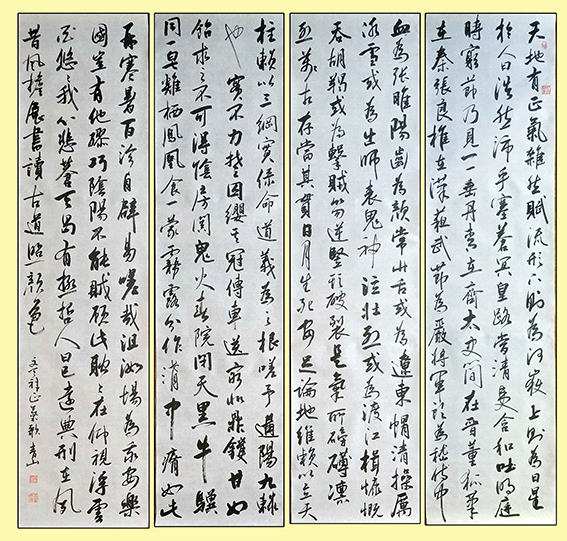 天地有正氣雜然賦流形下則為河嶽上則為日星
於人曰浩然沛乎塞蒼冥皇路當清夷含和吐明庭
時窮節乃見一一垂丹青在齊太史簡在晉董狐筆
在秦張良椎在漢蘇武節為嚴將軍頭為嵇侍中
血為張睢陽齒為顏常山舌或為遼東帽清操厲
冰雪或為出師表鬼神泣壯烈或為渡江楫慷慨
吞胡羯或為擊賊笏逆豎頭破裂是氣所磅礡凜
烈萬古存當其貫日月生死安足論地維賴以立天
柱賴以三綱實係命道義為之根嗟予遘陽九隸
也實不力楚囚纓其冠傳車送窮北鼎鑊甘如
飴求之不可得陰房闃鬼火春院閉天黑牛驥
同一皂雞棲鳳凰食一蒙霧露分作溝中瘠如此
再寒暑百沴自辟易嗟哉沮洳場為我安樂
國豈有他繆巧陰陽不能賊顧此耿耿在仰視浮雲
白悠我心悲蒼天曷有極哲人日已遠典刑在夙
昔風檐展書讀古道照顏色
文天祥正氣歌